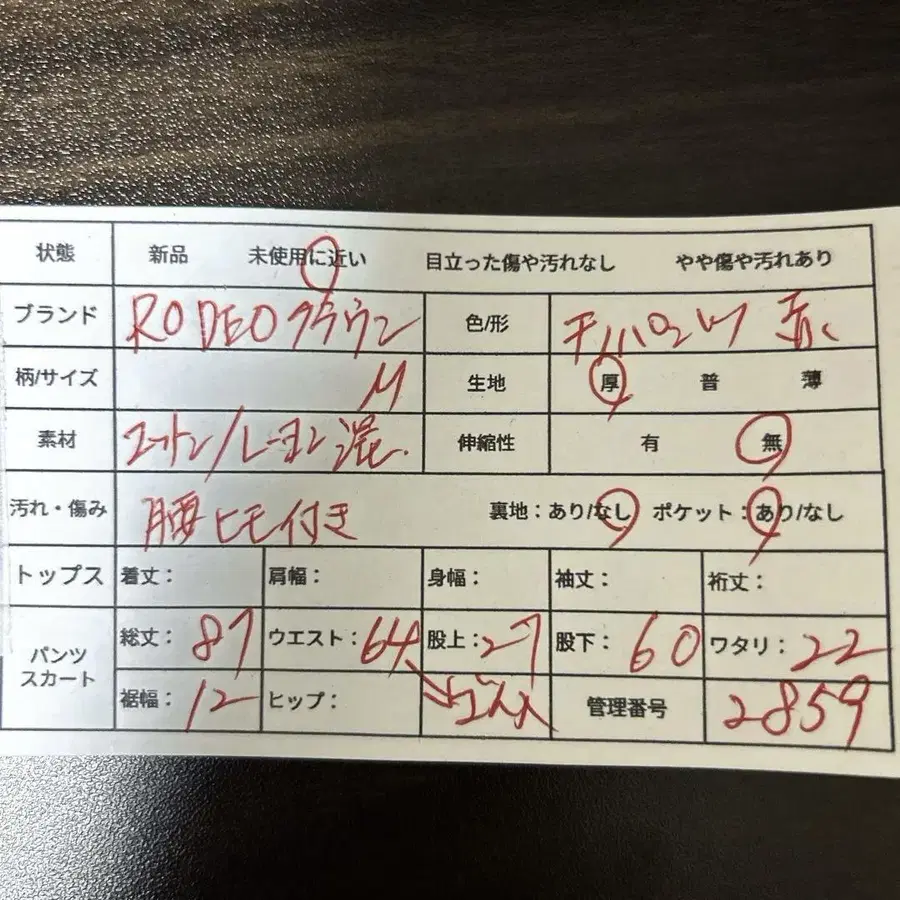 状態 新品 未使用に近い 目立った傷や汚れなし やや傷や汚れあり
ブランド RODEOクラウン 色/形 赤
柄/サイズ M 生地 厚 普 薄
素材 コットン/レーヨン混 伸縮性 有 無
汚れ・傷み 腰ヒモ付き 裏地：あり/なし ポケット：あり/なし
トップス 着丈： 肩幅： 身幅： 袖丈： 裄丈：
パンツ スカート 総丈：87 ウエスト：64 股上：27 股下：60 ワタリ：22
裾幅：12 ヒップ： 管理番号 2859